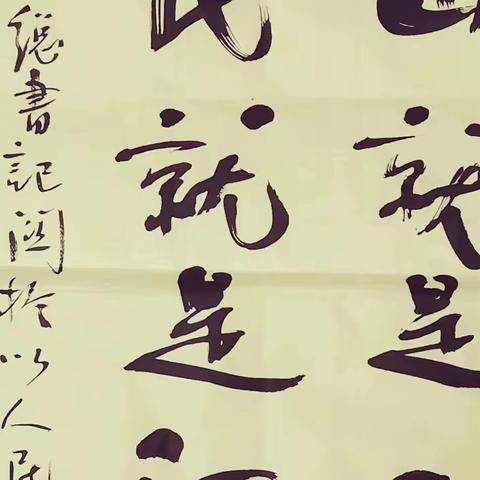 就是
民就是
總書記關於以人民